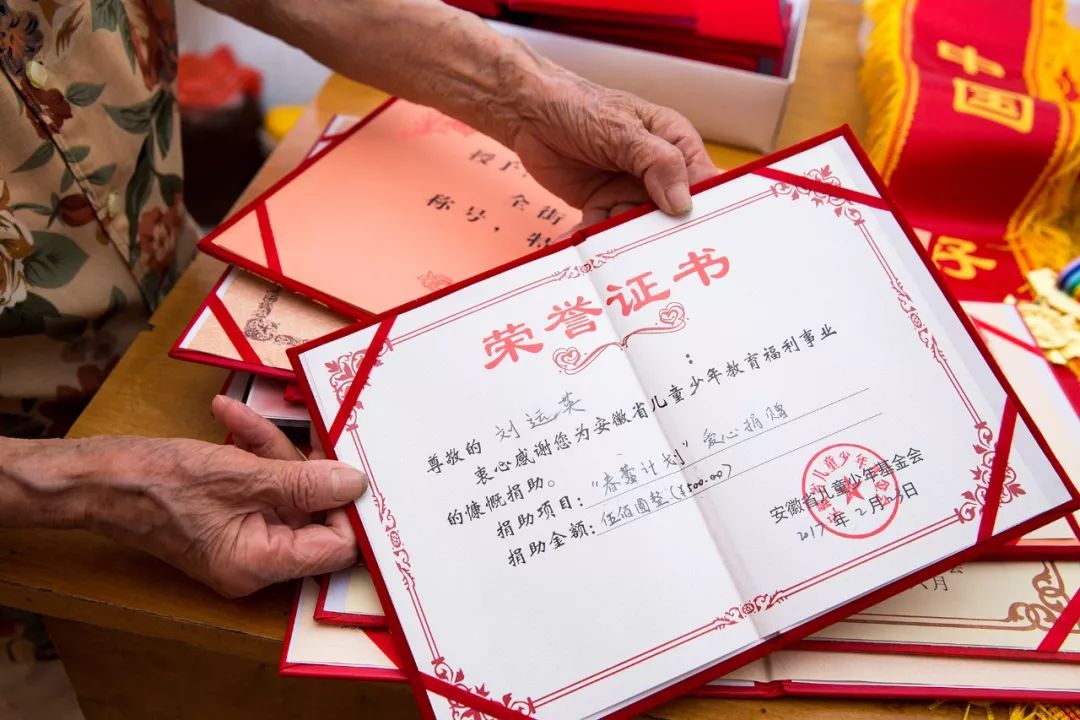 全街
称号，特
中国
好
荣誉证书
尊敬的 刘运英 ：
衷心感谢您为安徽省儿童少年教育福利事业
的慷慨捐助。
捐助项目：“春蕾计划”爱心捐赠
捐助金额：伍佰圆整(¥500.00)
安徽省儿童少年基金会
2017年2月23日